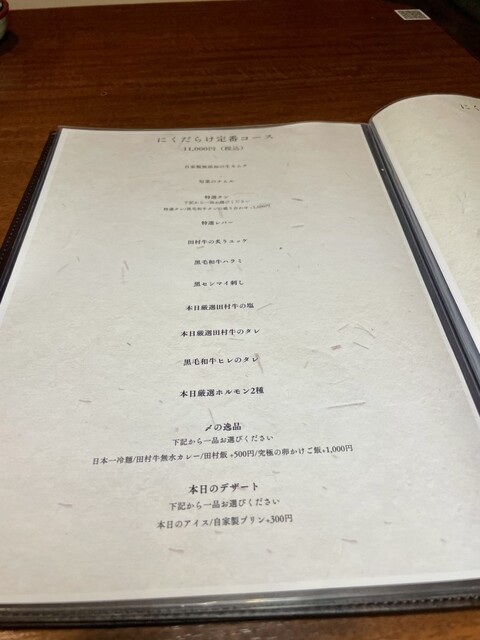 にくだらけ定番コース
11,000円（税込）
自家製無添加の生キムチ
旬菜のナムル
特選タン
下記から一品お選びください
特選レバー
田村牛の炙りユッケ
黒毛和牛ハラミ
黒センマイ刺し
本日厳選田村牛の塩
本日厳選田村牛のタレ
黒毛和牛ヒレのタレ
本日厳選ホルモン2種
〆の逸品
下記から一品お選びください
日本一冷麺/田村牛無水カレー/田村飯 +500円/究極の卵かけご飯+1,000円
本日のデザート
下記から一品お選びください
本日のアイス/自家製プリン+300円
にく